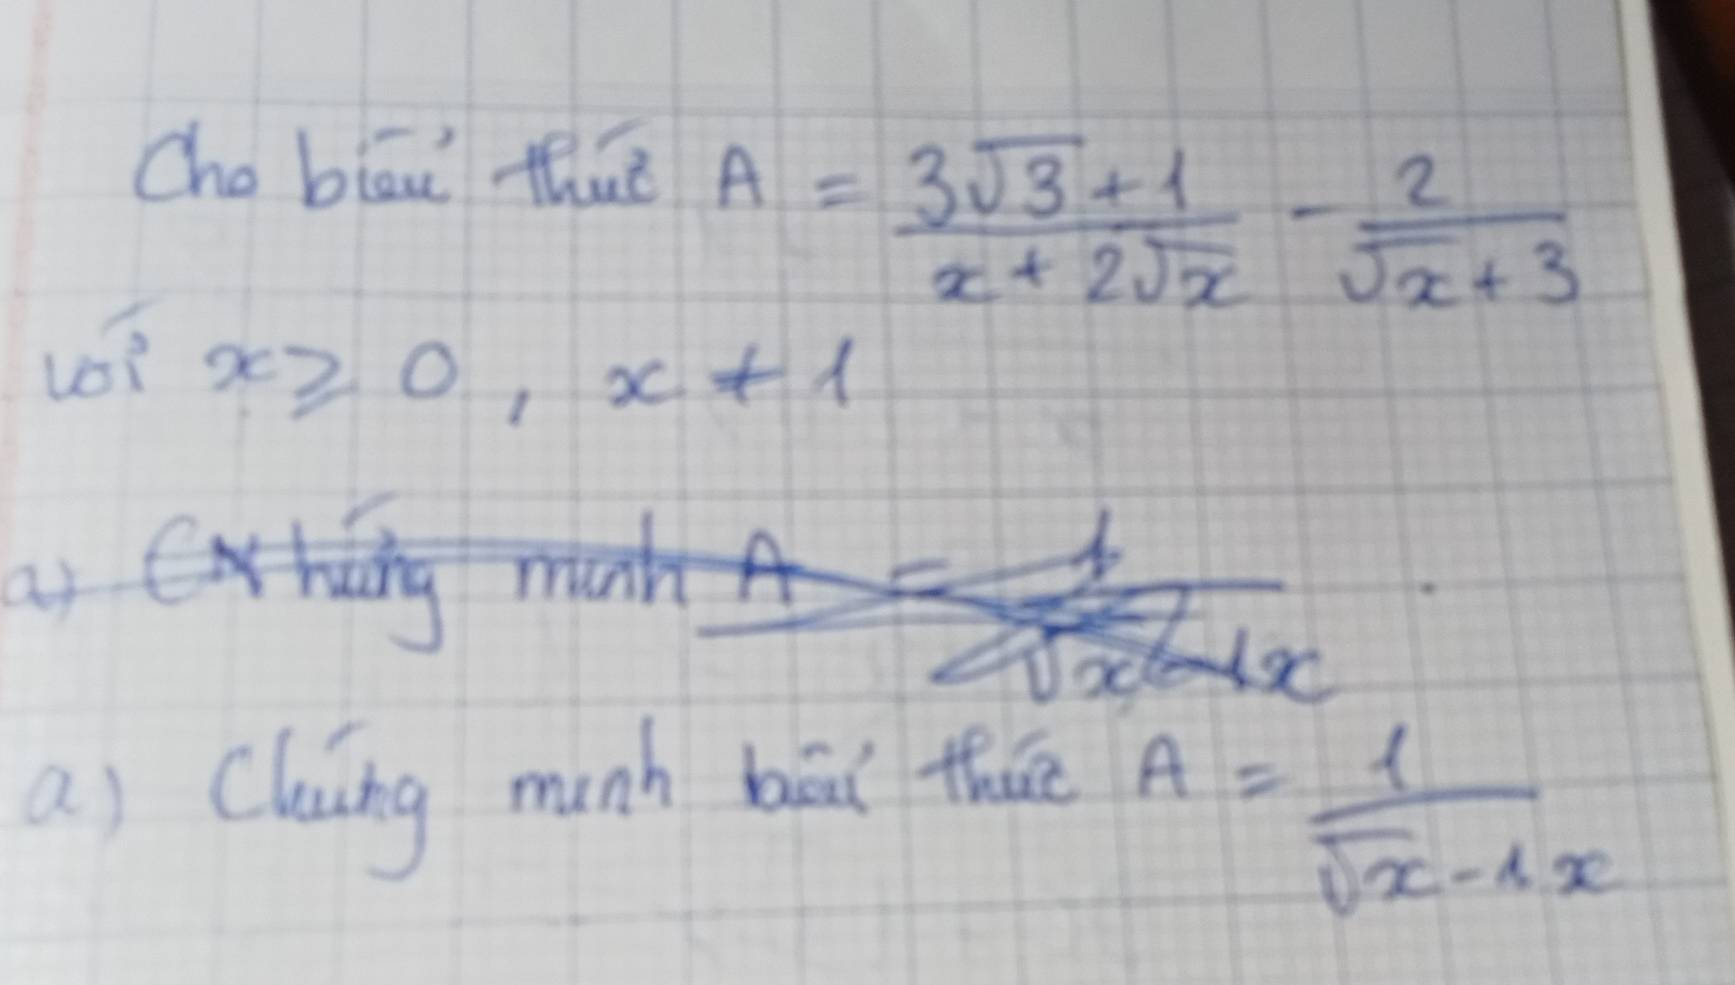 Cho biểu thức A = \frac{3\sqrt{3}+1}{x+2\sqrt{x}} - \frac{2}{\sqrt{x}+3}
với x ≥ 0, x ≠ 1
a) Chứng minh A = \frac{1}{\sqrt{x}-1x}
a) Chứng minh biểu thức A = \frac{1}{\sqrt{x}-1x}